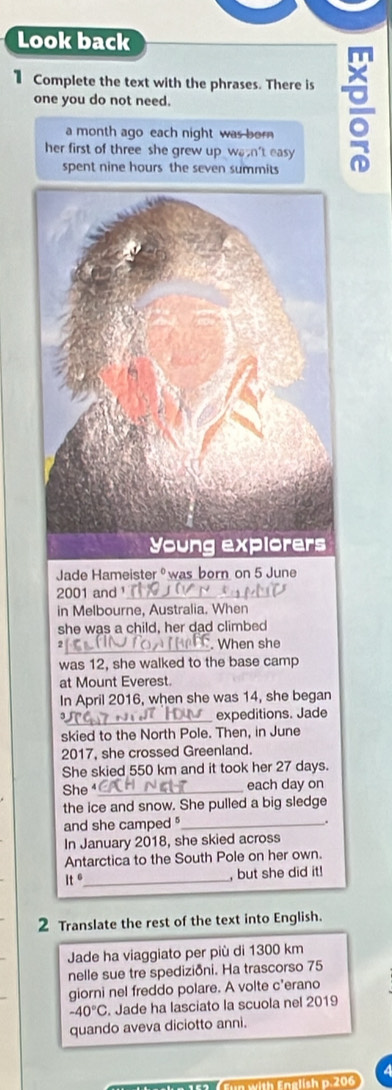 Look back
Explore
1 Complete the text with the phrases. There is
one you do not need.
a month ago each night was born
her first of three she grew up wasn't easy
spent nine hours the seven summits
Young explorers
Jade Hameister ⁰ was born on 5 June
2001 and ¹
in Melbourne, Australia. When
she was a child, her dad climbed
². When she
was 12, she walked to the base camp
at Mount Everest.
In April 2016, when she was 14, she began
³ expeditions. Jade
skied to the North Pole. Then, in June
2017, she crossed Greenland.
She skied 550 km and it took her 27 days.
She ⁴ each day on
the ice and snow. She pulled a big sledge
and she camped ⁵ .
In January 2018, she skied across
Antarctica to the South Pole on her own.
It ⁶ , but she did it!
2 Translate the rest of the text into English.
Jade ha viaggiato per più di 1300 km
nelle sue tre spedizioni. Ha trascorso 75
giorni nel freddo polare. A volte c'erano
-40°C. Jade ha lasciato la scuola nel 2019
quando aveva diciotto anni.
Fun with English p.206